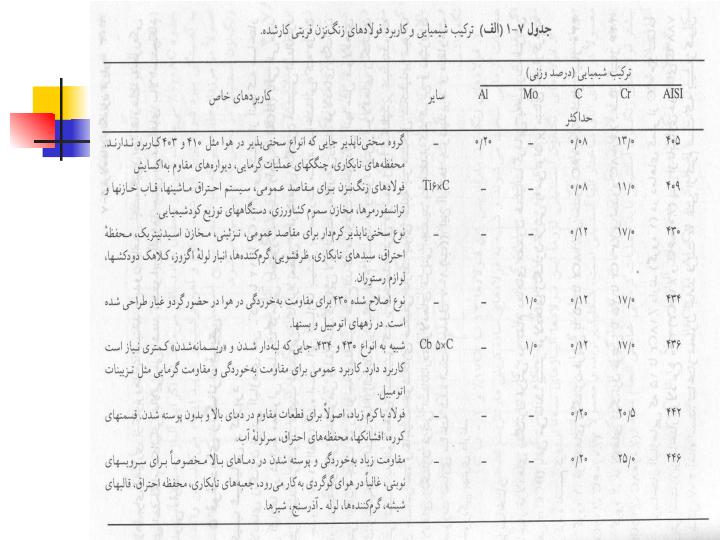 جدول ۷-۱ (الف) ترکیب شیمیایی و کاربرد فولادهای زنگ‌نزن فریتی کارشده.
ترکیب شیمیایی (درصد وزنی)
AISI Cr C Mo Al سایر کاربردهای خاص
حداکثر
۴۰۵ ۱۳/۰ ۰/۰۸ – ۰/۲۰ – گروه سختی‌ناپذیر جایی که انواع سختی‌پذیر در هوا مثل ۴۱۰ و ۴۰۳ کاربرد ندارند.
محفظه‌های تابکاری، چنگکهای عملیات گرمایی، دیواره‌های مقاوم به‌اکسایش
۴۰۹ ۱۱/۰ ۰/۰۸ – – Ti۶×C فولادهای زنگ‌نزن برای مقاصد عمومی، سیستم احتراق ماشینها، قاب خازنها و
ترانسفورمرها، مخازن سموم کشاورزی، دستگاههای توزیع کودشیمیایی.
۴۳۰ ۱۷/۰ ۰/۱۲ – – – نوع سختی‌ناپذیر کرم‌دار برای مقاصد عمومی، تزئینی، مخازن اسیدنیتریک، محفظهٔ
احتراق، سبدهای تابکاری، ظرفشویی، گرم‌کننده‌ها، انبار لولهٔ اگزوز، کلاهک دودکشها،
لوازم رستوران.
۴۳۴ ۱۷/۰ ۰/۱۲ ۱/۰ – – نوع اصلاح شده ۴۳۰ برای مقاومت به‌خوردگی در هوا در حضور گردو غبار طراحی شده
است. در زههای اتومبیل و بستها.
۴۳۶ ۱۷/۰ ۰/۱۲ ۱/۰ – Cb ۵×C شبیه به انواع ۴۳۰ و ۴۳۴. جایی که لبه‌دار شدن و «ریسمانه‌شدن» کمتری نیاز است
کاربرد دارد. کاربرد عمومی برای مقاومت به‌خوردگی و مقاومت گرمایی مثل تزیینات
اتومبیل.
۴۴۲ ۲۰/۵ ۰/۲۰ – – – فولاد با کرم زیاد، اصولاً برای قطعات مقاوم در دمای بالا و بدون پوسته شدن. قسمتهای
کوره، افشانکها، محفظه‌های احتراق، سرلولهٔ آب.
۴۴۶ ۲۵/۰ ۰/۲۰ – – – مقاومت زیاد به‌خوردگی و پوسته شدن در دماهای بالا مخصوصاً برای سرویسهای
نوبتی، غالباً در هوای گوگردی به‌کار می‌رود، جعبه‌های تابکاری، محفظه احتراق، قالبهای
شیشه، گرم‌کننده‌ها، لوله ـ آذرسنج، شیرها.